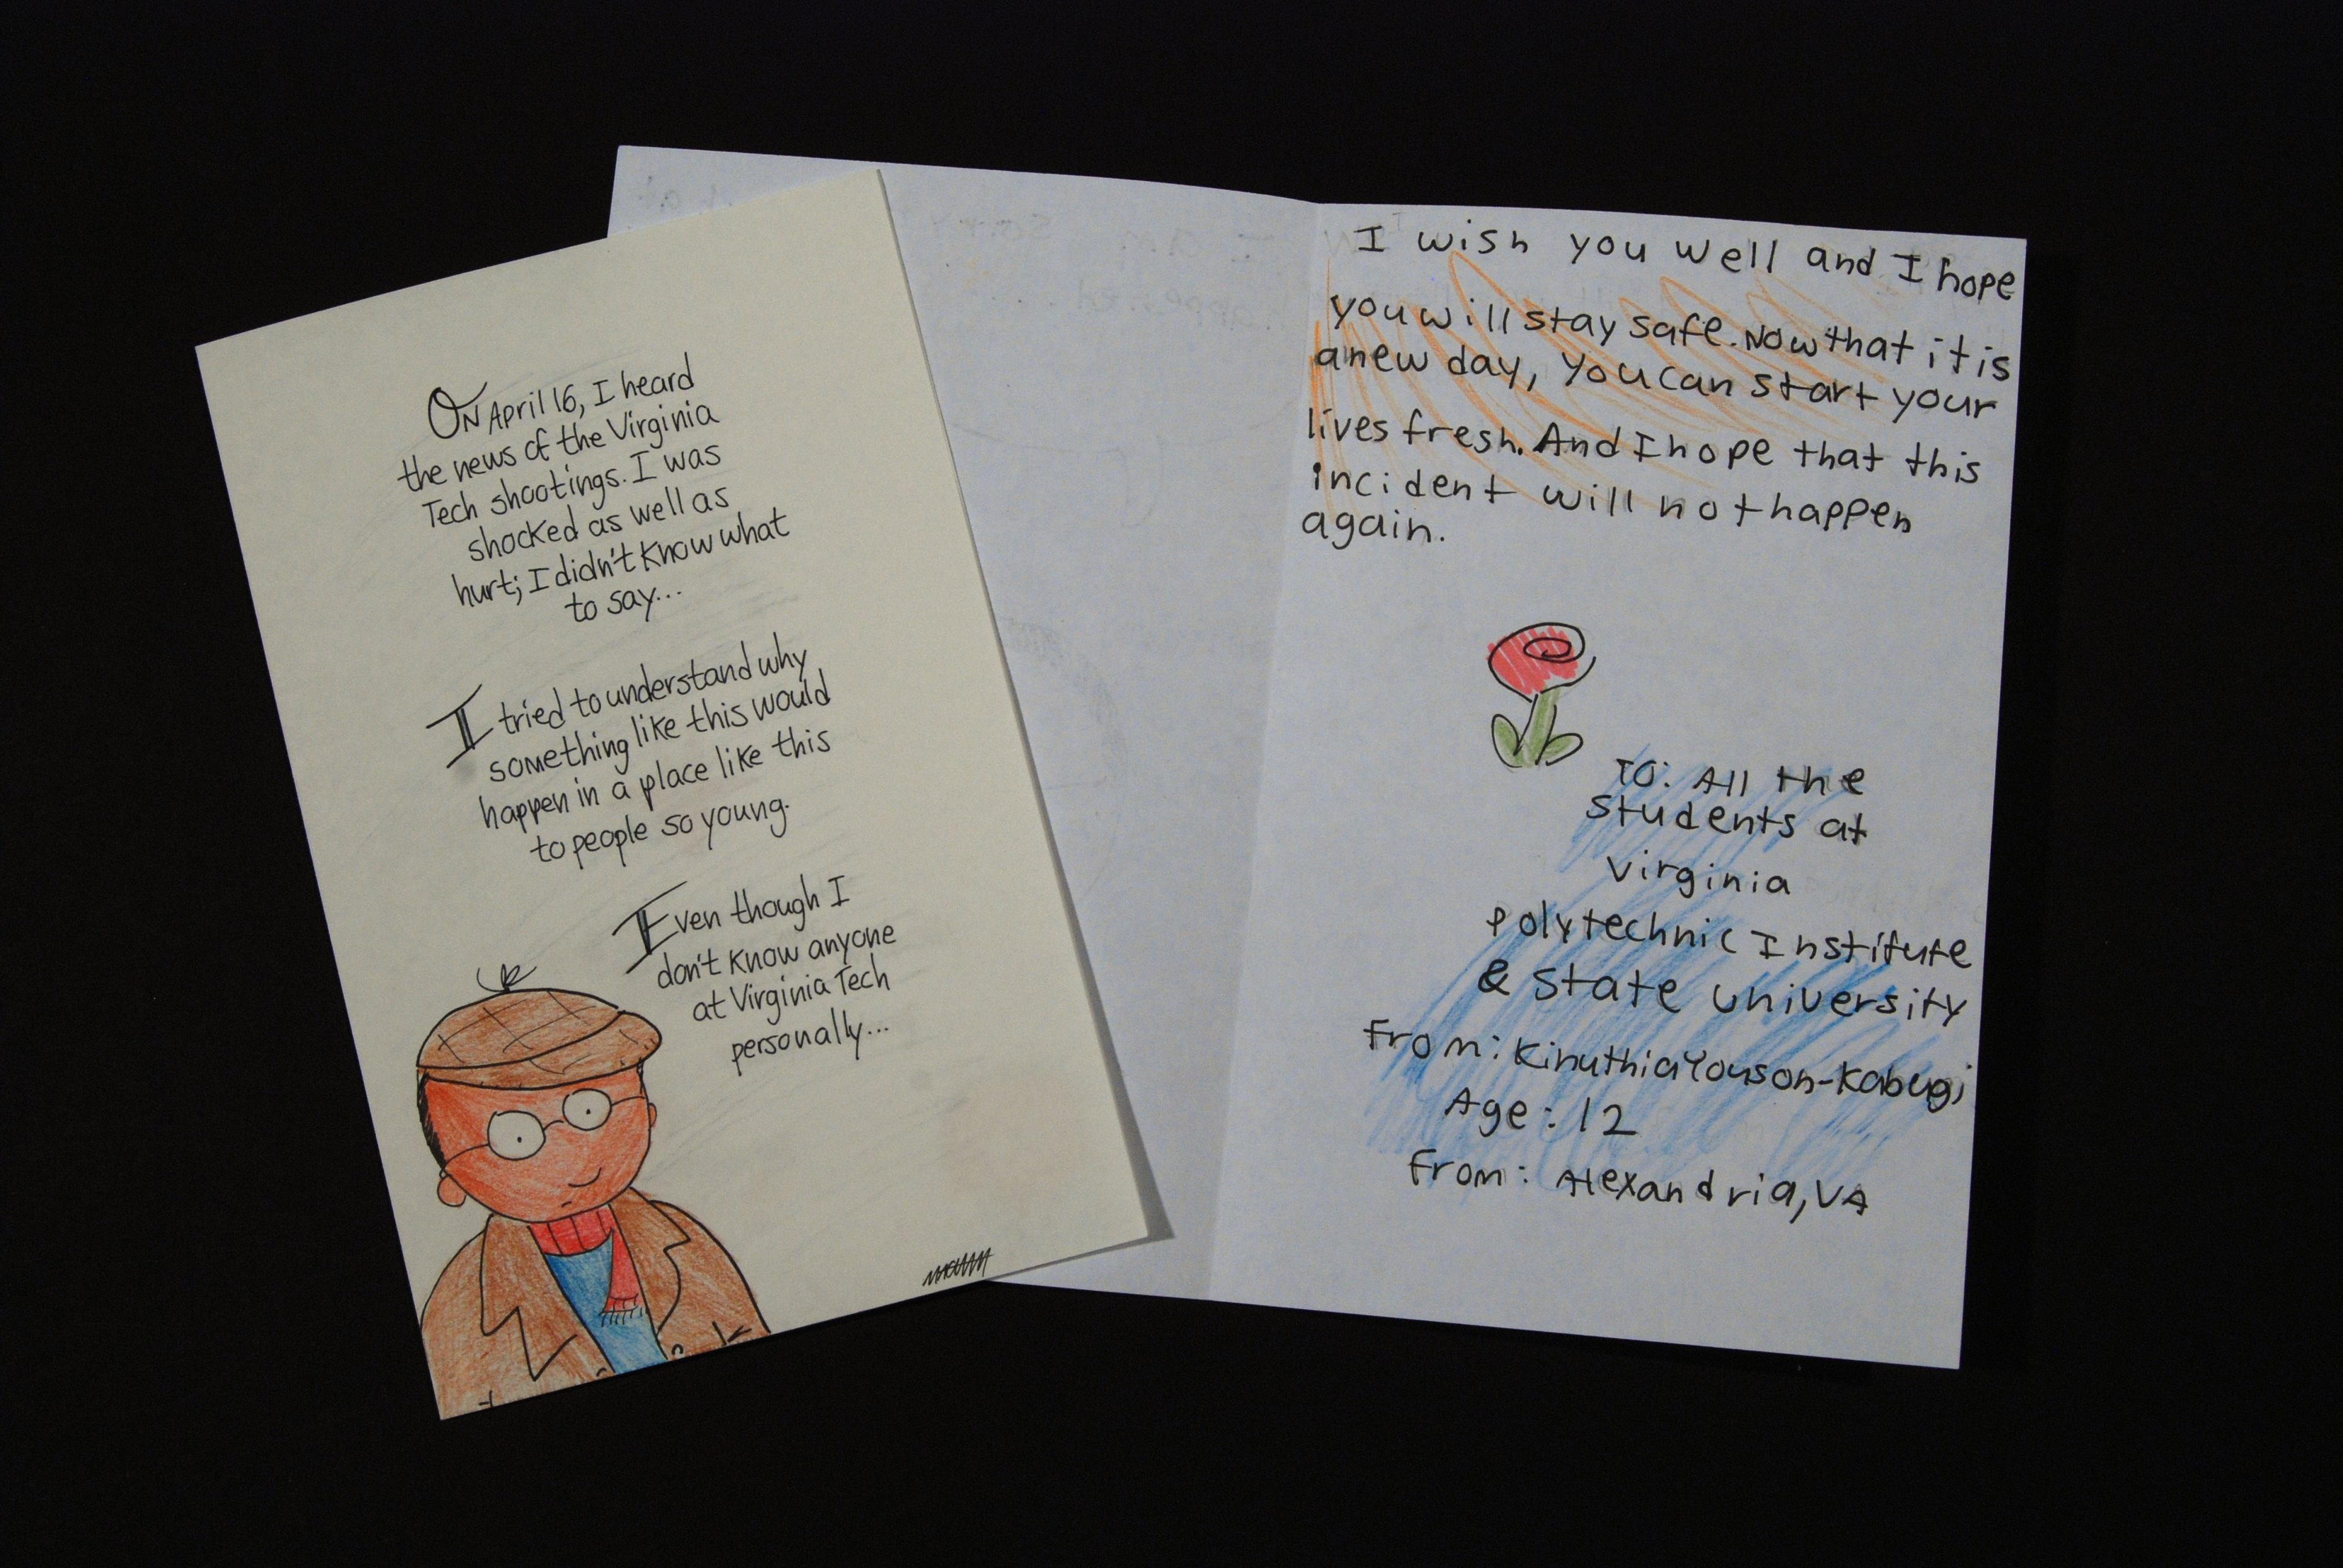 On April 16, I heard
the news of the Virginia
Tech shootings. I was
shocked as well as
hurt; I didn't know what
to say...
I tried to understand why
something like this would
happen in a place like this
to people so young.
Even though I
don't know anyone
at Virginia Tech
personally...
I wish you well and I hope
you will stay safe. Now that it is
a new day, you can start your
lives fresh. And I hope that this
incident will not happen
again.
To: All the
Students at
Virginia
Polytechnic Institute
& State University
From: Kinuthia Youson-Kabugi
Age: 12
From: Alexandria, VA